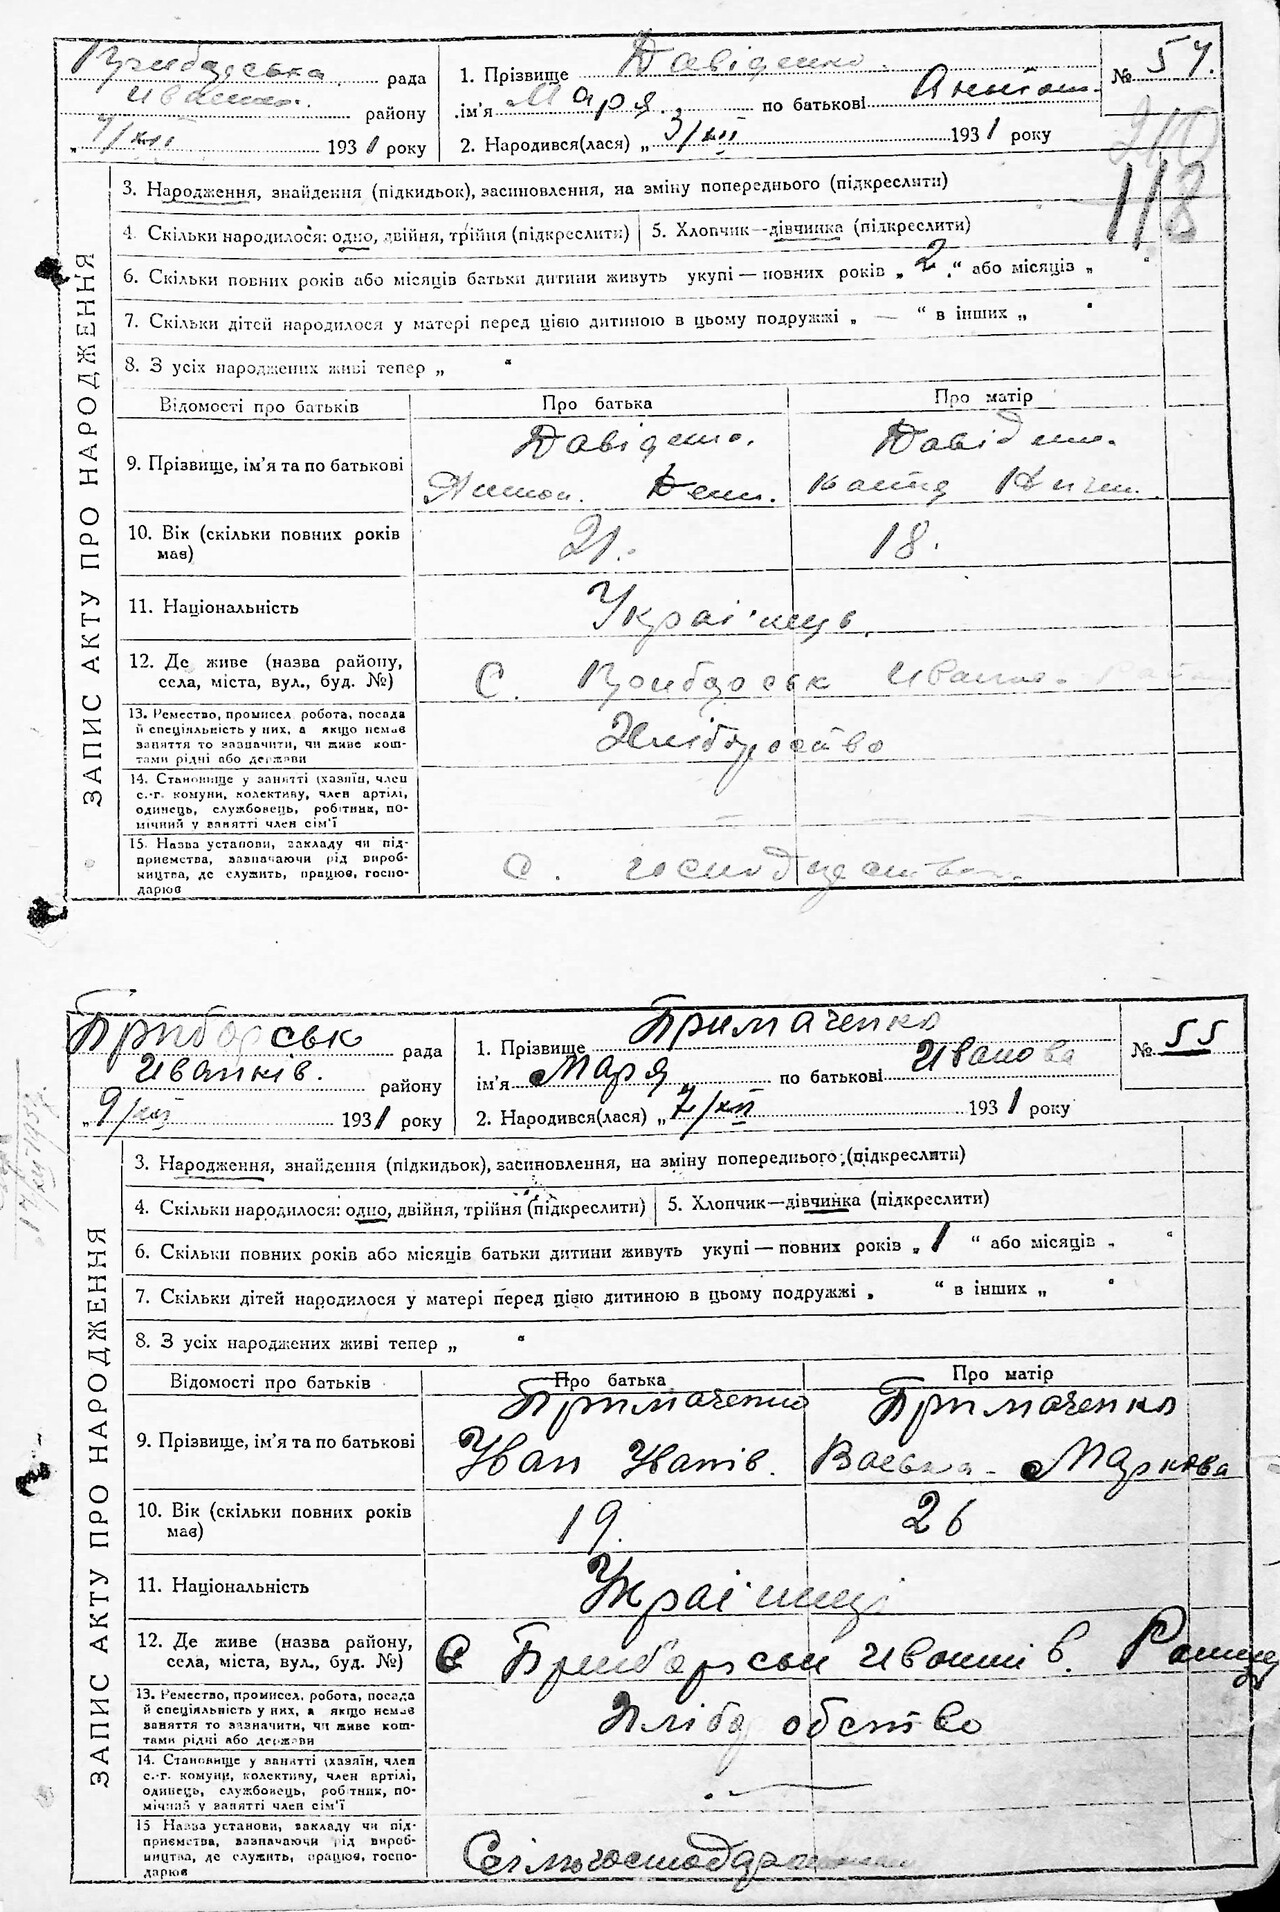 рада
району
7/XII 1931 року
1. Прізвище Давіденко
ім'я Маря по батькові
2. Народився(лася) „ 3/XII 1931 року
№ 54.
118
ЗАПИС АКТУ ПРО НАРОДЖЕННЯ
3. Народження, знайдення (підкидьок), засиновлення, на зміну попереднього (підкреслити)
4. Скільки народилося: одно, двійня, трійня (підкреслити)
5. Хлопчик—дівчинка (підкреслити)
6. Скільки повних років або місяців батьки дитини живуть укупі — повних років „ 2 “ або місяців „ “
7. Скільки дітей народилося у матері перед цією дитиною в цьому подружжі „ — “ в інших „ “
8. З усіх народжених живі тепер „ “
Відомості про батьків
Про батька
Про матір
9. Прізвище, ім'я та по батькові
10. Вік (скільки повних років має)
21.
18.
11. Національність
Українець.
12. Де живе (назва району, села, міста, вул., буд. №)
С.
13. Ремество, промисел, робота, посада й спеціяльність у них, а якщо немає заняття то зазначити, чи живе коштами рідні або держави
Хліборобство
14. Становище у занятті (хазяїн, член с.-г. комуни, колективу, член артілі, одинець, службовець, робітник, помічний у занятті член сім'ї
15. Назва установи, закладу чи підприємства, зазначаючи рід виробництва, де служить, працює, господарює
С.
Приборськ рада
Иванків. району
„ 9/XII 1931 року
1. Прізвище Примаченко
ім'я Маря по батькові Иванова
2. Народився(лася) „ 7/XII 1931 року
№ 55
ЗАПИС АКТУ ПРО НАРОДЖЕННЯ
3. Народження, знайдення (підкидьок), засиновлення, на зміну попереднього (підкреслити)
4. Скільки народилося: одно, двійня, трійня (підкреслити)
5. Хлопчик—дівчинка (підкреслити)
6. Скільки повних років або місяців батьки дитини живуть укупі — повних років „ 1 “ або місяців „ “
7. Скільки дітей народилося у матері перед цією дитиною в цьому подружжі „ “ в інших „ “
8. З усіх народжених живі тепер „ “
Відомості про батьків
Про батька
Про матір
9. Прізвище, ім'я та по батькові
Примаченко
Іван Иванів.
Примаченко
Маркова
10. Вік (скільки повних років має)
19.
26
11. Національність
Українці
12. Де живе (назва району, села, міста, вул., буд. №)
С Приборськ Иванків.
13. Ремество, промисел, робота, посада й спеціяльність у них, а якщо немає заняття то зазначити, чи живе коштами рідні або держави
Хліборобство
14. Становище у занятті (хазяїн, член с.-г. комуни, колективу, член артілі, одинець, службовець, робітник, помічний у занятті член сім'ї
15 Назва установи, закладу чи підприємства, зазначаючи рід виробництва, де служить, працює, господарює